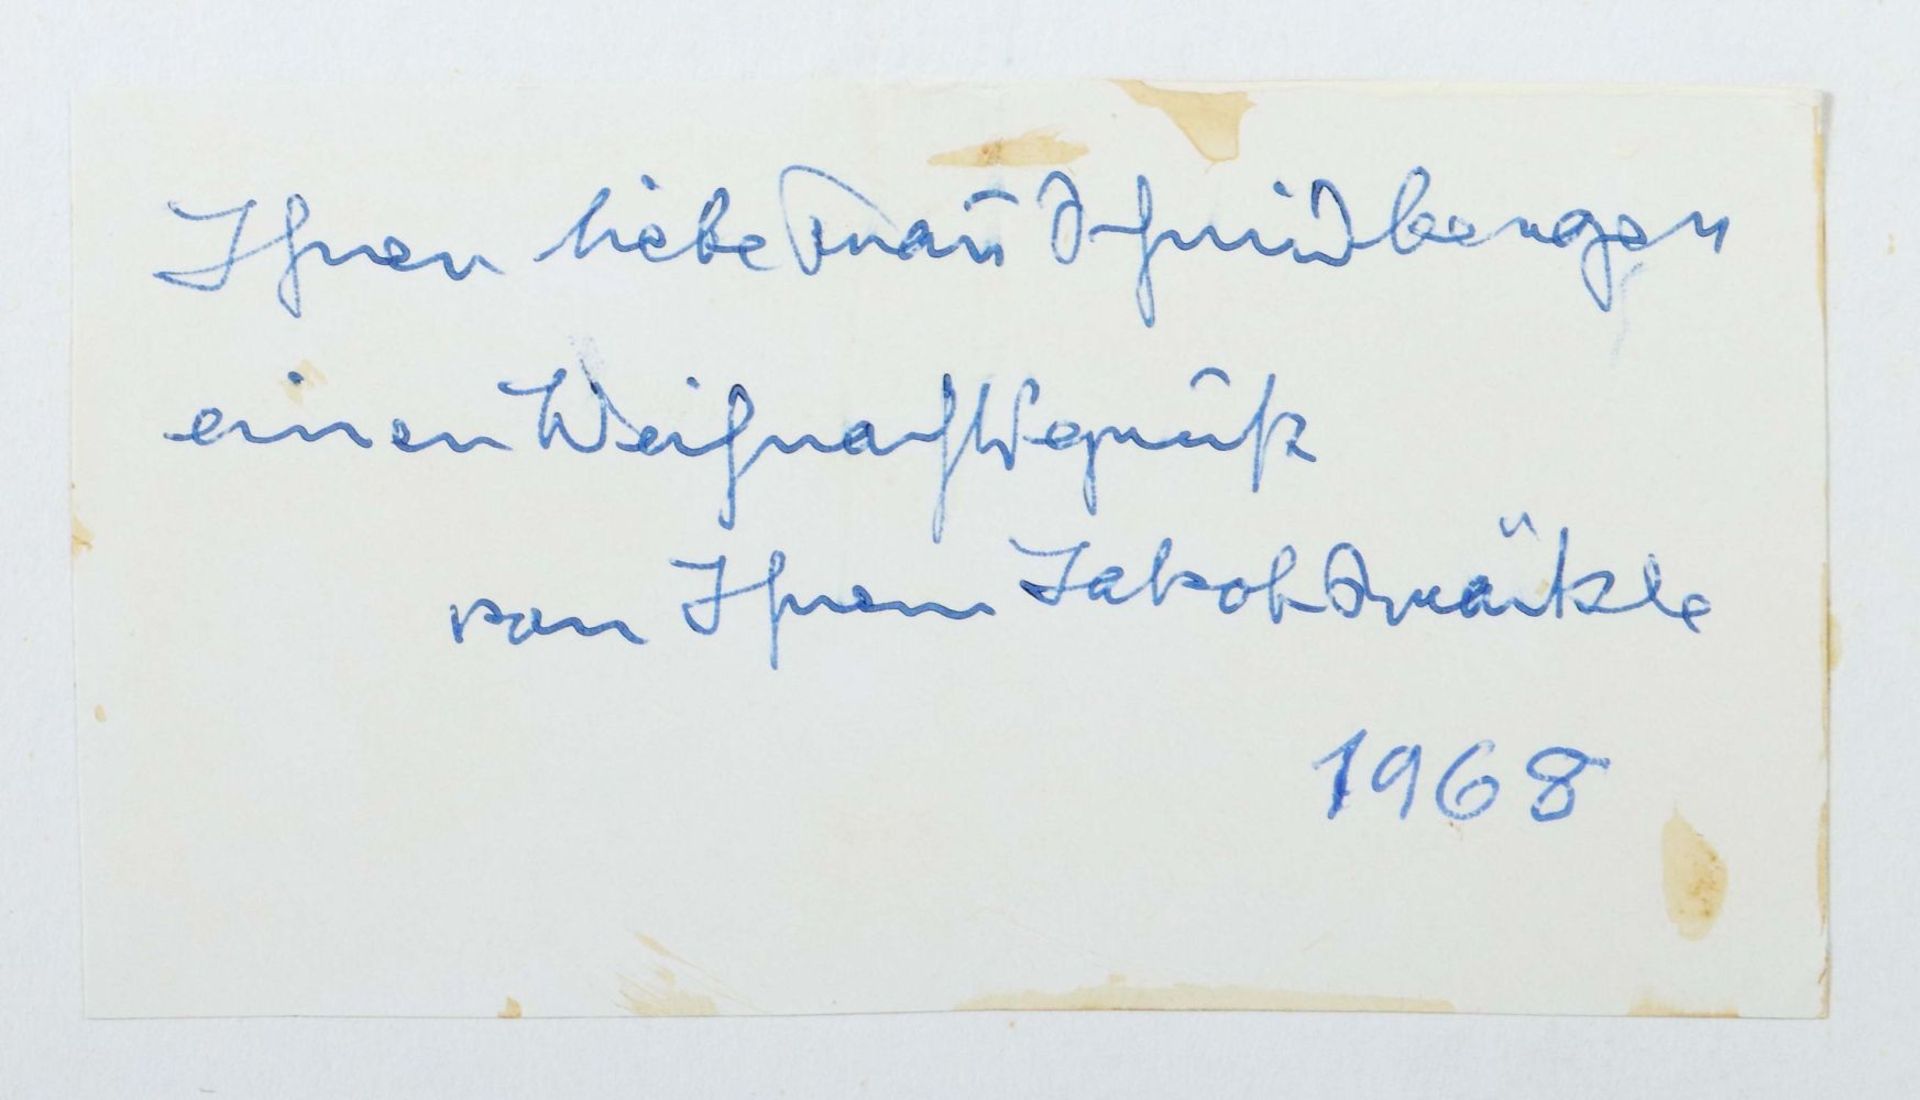 Ihnen liebe Frau Schmidberger
einen Weihnachtsgruß
von Ihrem Jakob Bräckle
1968